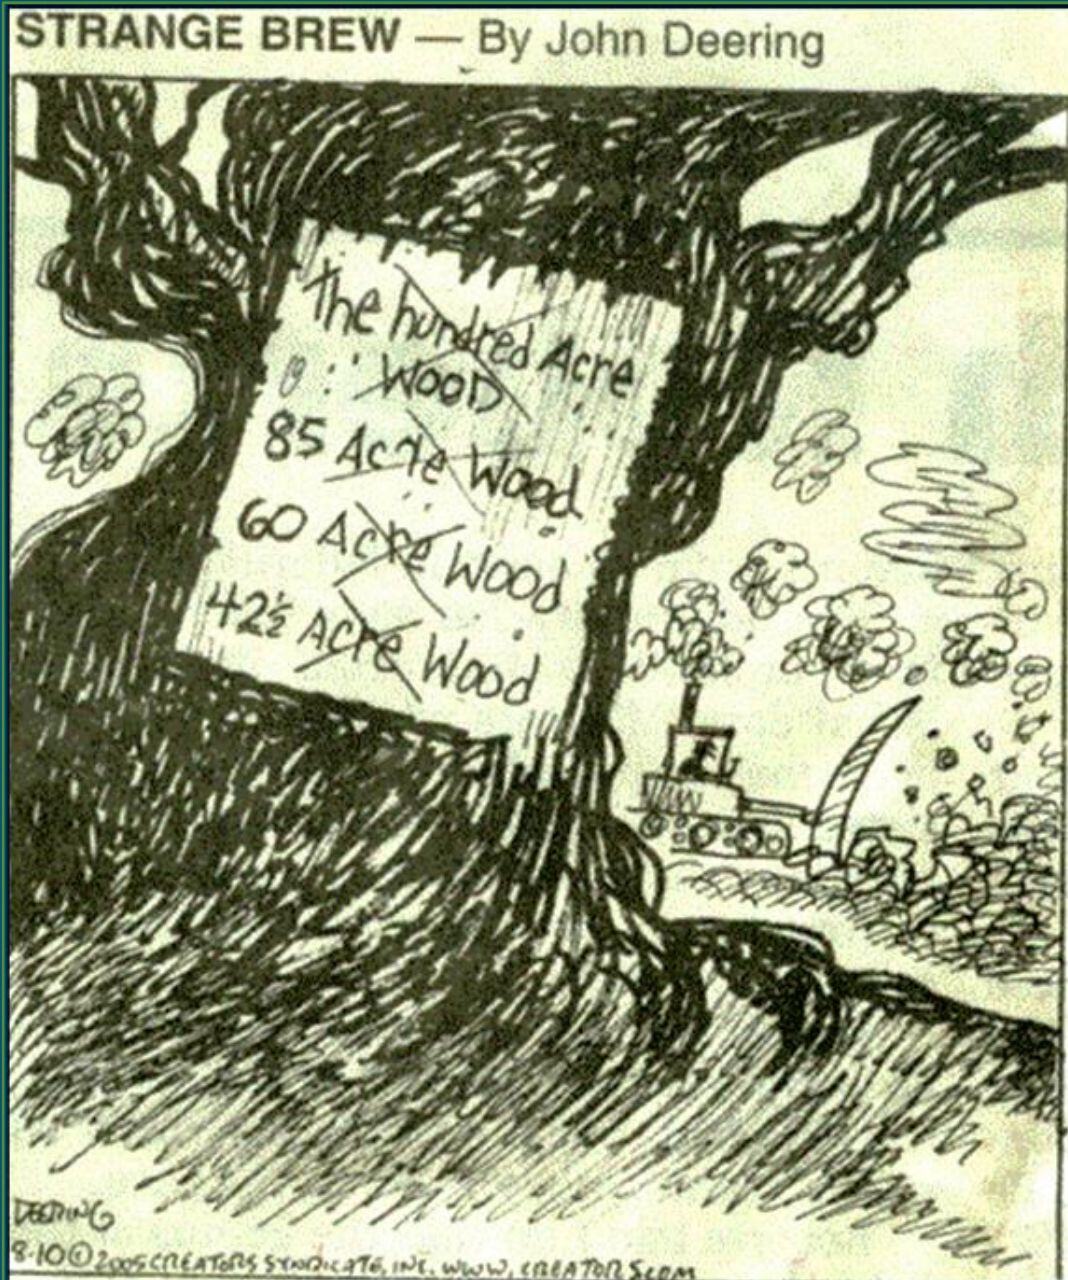 STRANGE BREW — By John Deering
The hundred Acre
Wood
85 Acre Wood
60 Acre Wood
42½ Acre Wood
DEERING
8-10 © 2005 CREATORS SYNDICATE, INC. WWW.CREATORS.COM